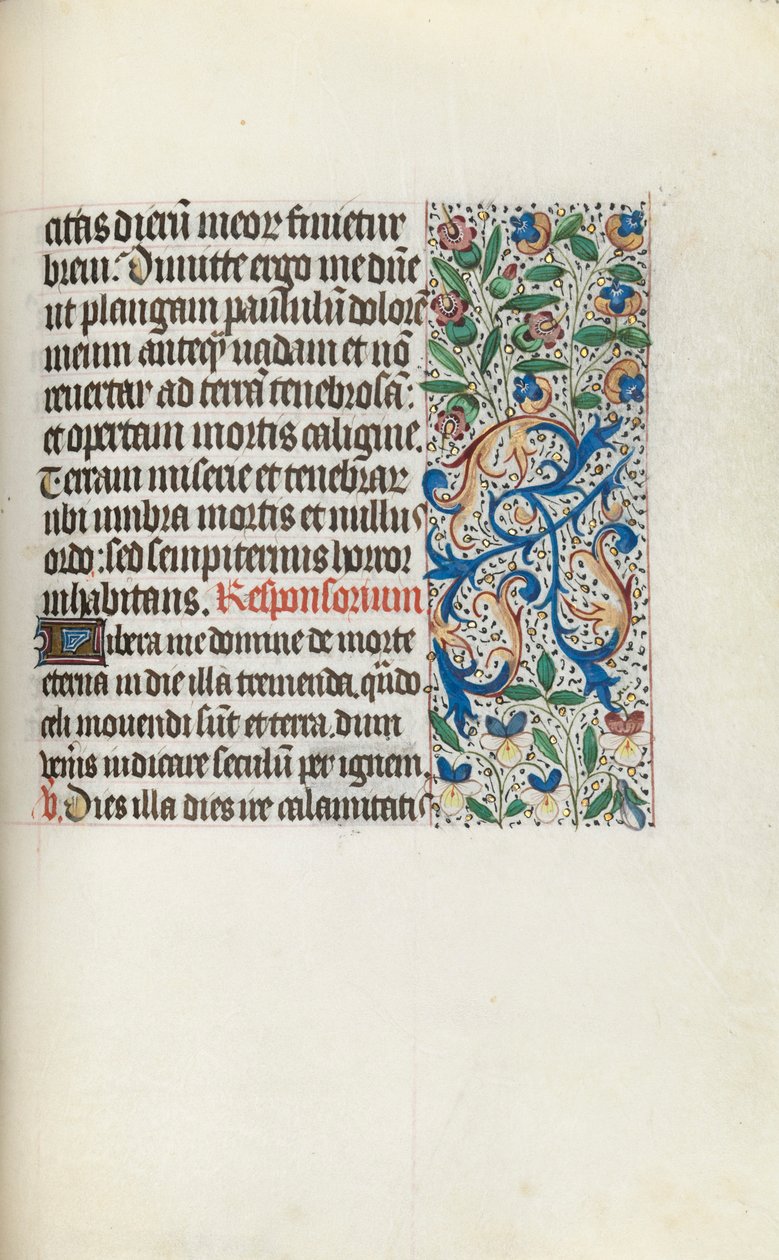 citas dierū meoꝝ finietur
breui. Dimitte ergo me dñe
ut plangam paululū dolorē
meum anteqꝫ uadam et nō
reuertar ad terrā tenebrosā:
et opertam mortis caligine.
Terram miserie et tenebraꝝ
ubi umbra mortis et nullus
ordo: sed sempiternus horror
inhabitans. Responsorium
Libera me domine de morte
eterna in die illa tremenda. qn̄do
celi mouendi sūt et terra. dum
ven̄is iudicare seculū per ignem.
v. Dies illa dies ire calamitatis